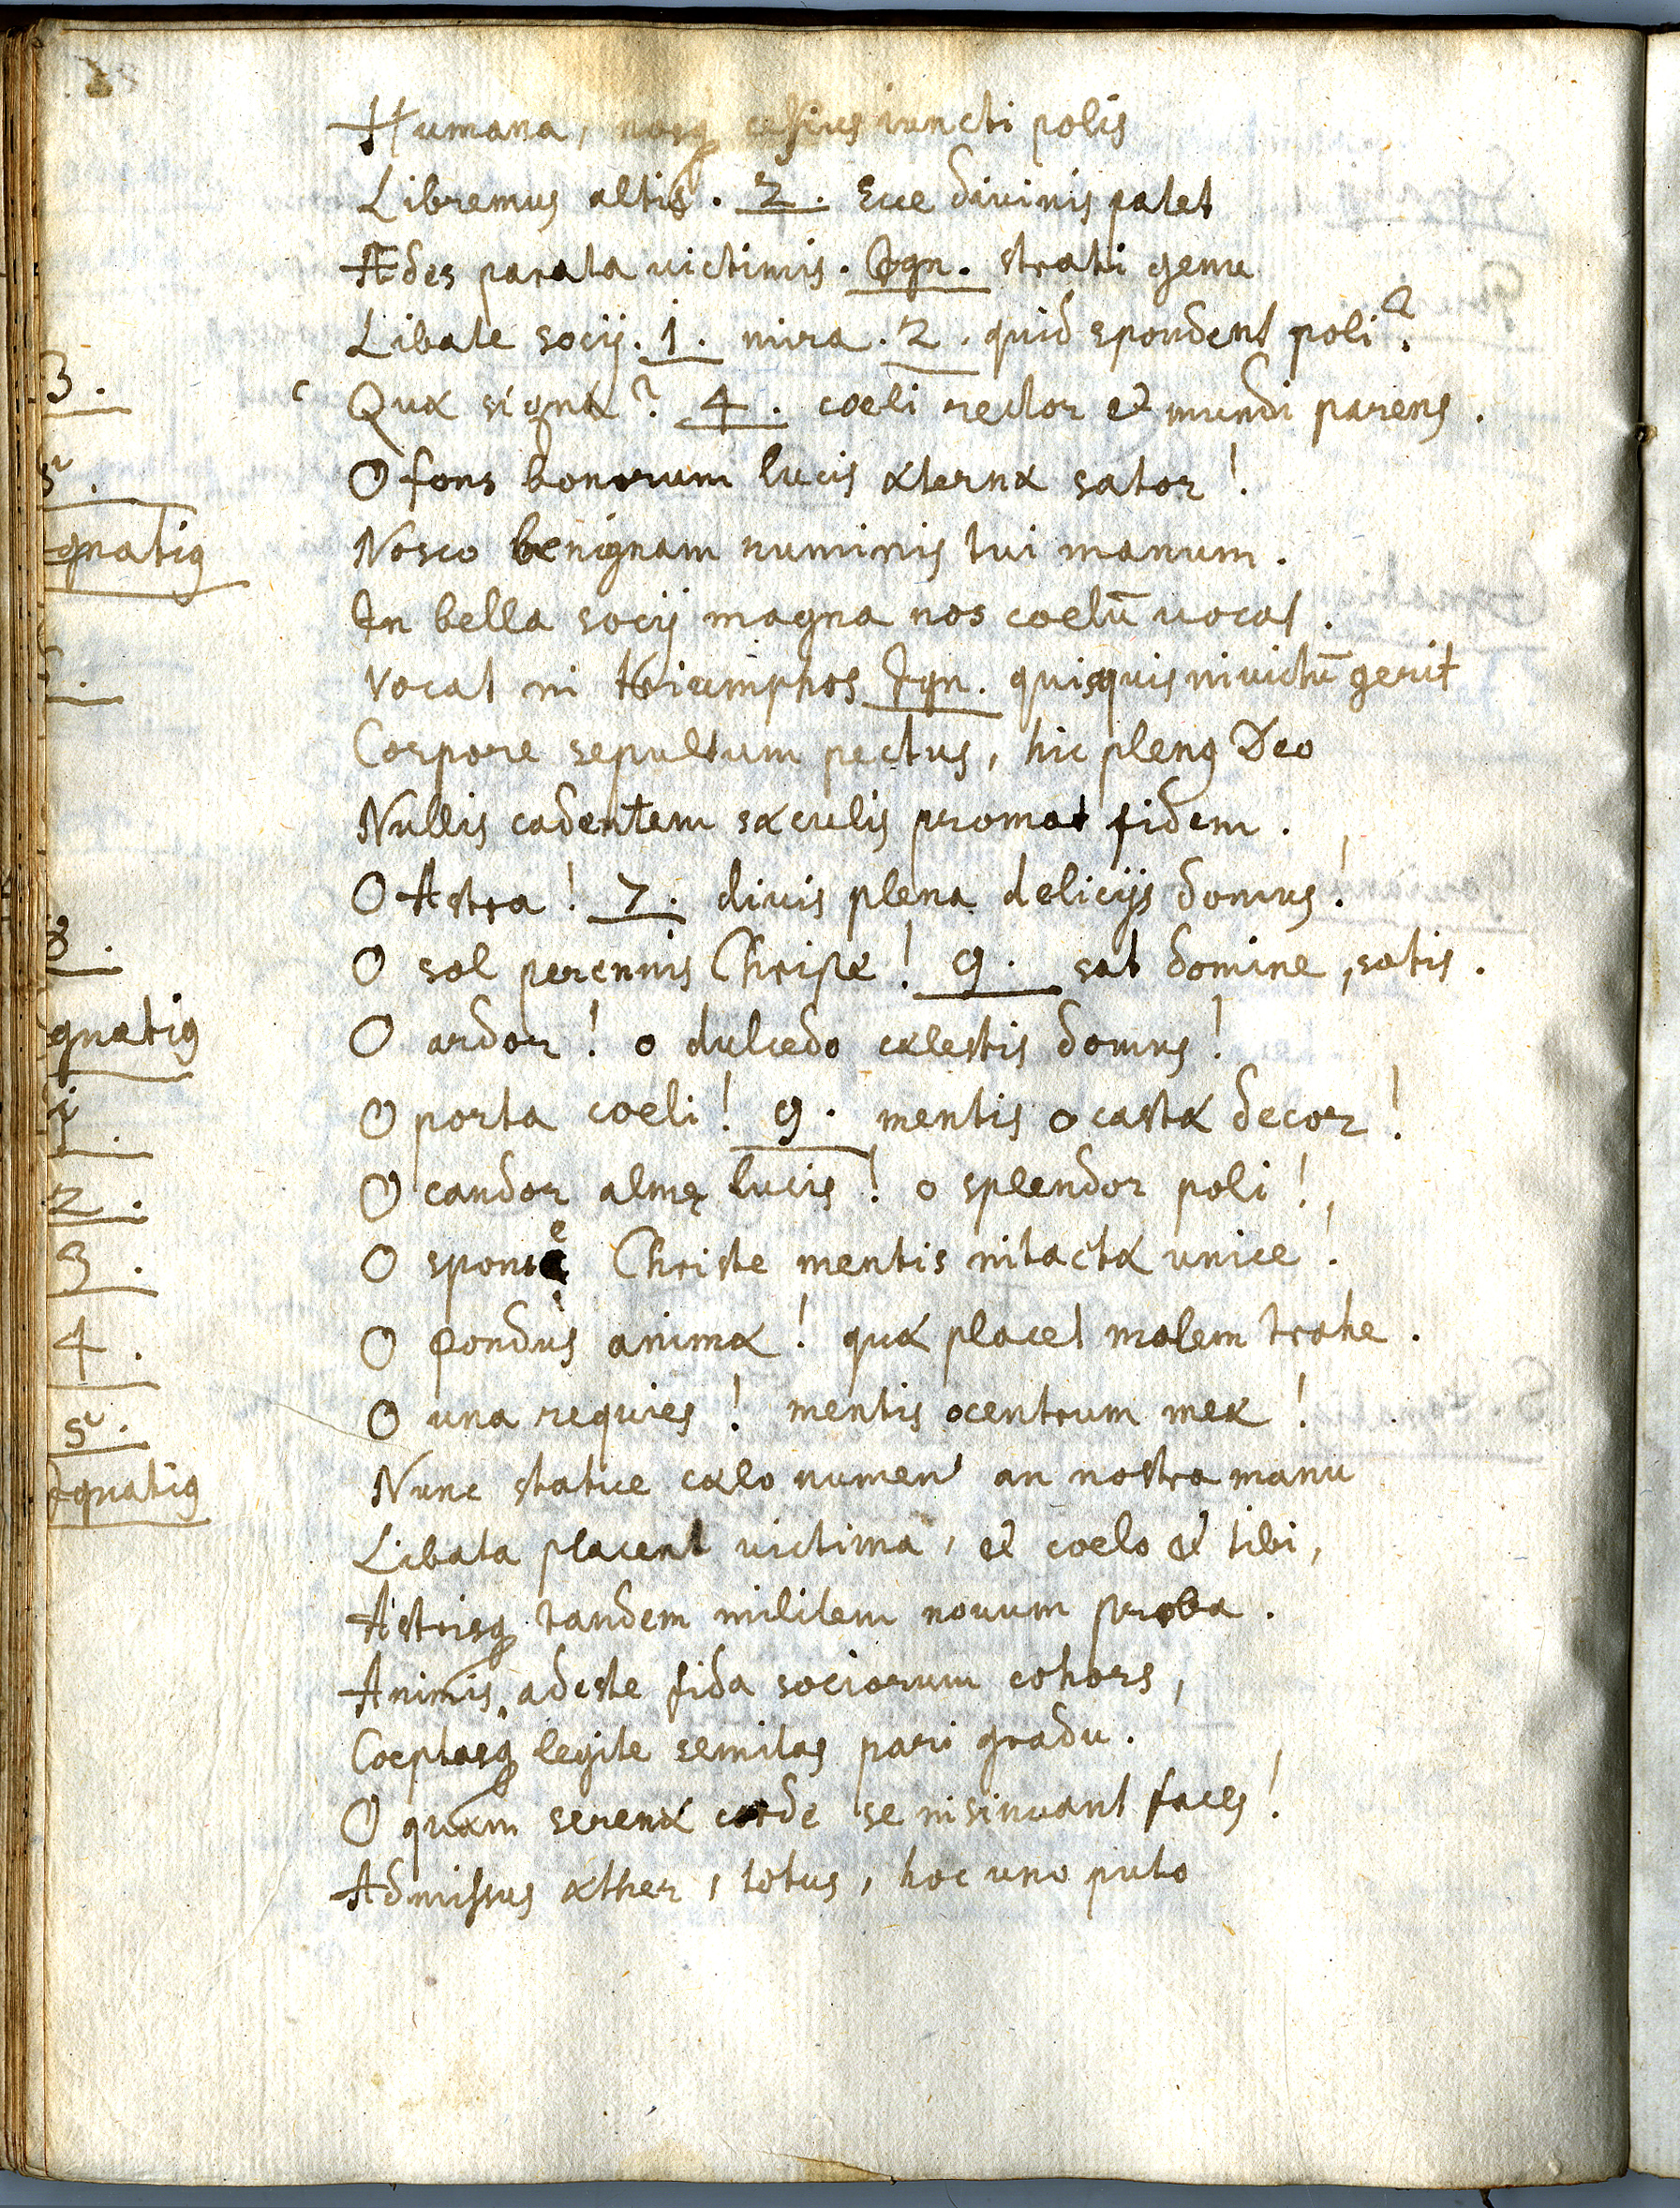 Humana, nosq celsius iuncti polis
Libremus altis. 2. Ecce divinis patet
Ædes parata victimis. Ign. strati genu
Libate socij. 1. mira. 2. quid spondent poli?
3. Quæ signa? 4. coeli rector et mundi parens.
5. O fons bonorum lucis æternæ sator!
gnatig Nosco benignam numinis tui manum.
In bella socij magna nos coelū vocat.
Vocat in triumphos Ign. quisquis invictū gerit
Corpore sepultum pectus, hic pleng Deo
Nullis cadentem sæculis promat fidem.
O Astra! 7. divis plena delicijs domus!
8. O sol perennis Christe! 9. sat domine, satis.
gnatig O ardor! o dulcedo cælestis domus!
O porta coeli! 9. mentis o castæ decor!
2. O candor almę lucis! o splendor poli!
3. O sponse Christe mentis intactæ unice!
4. O pondus animæ! quæ placet molem trahe.
5. O una requies! mentis o centrum meæ!
Ignatig Nunc statue cælo numen an nostra manu
Libata placent victima, et coelo et tibi,
Astrisq tandem militem novum proba.
Animis adeste fida sociorum cohors,
Coeptasq legite semitas pari gradu.
O quam serenæ corde se insinuant faces!
Admissus æther, totus, hoc uno puto